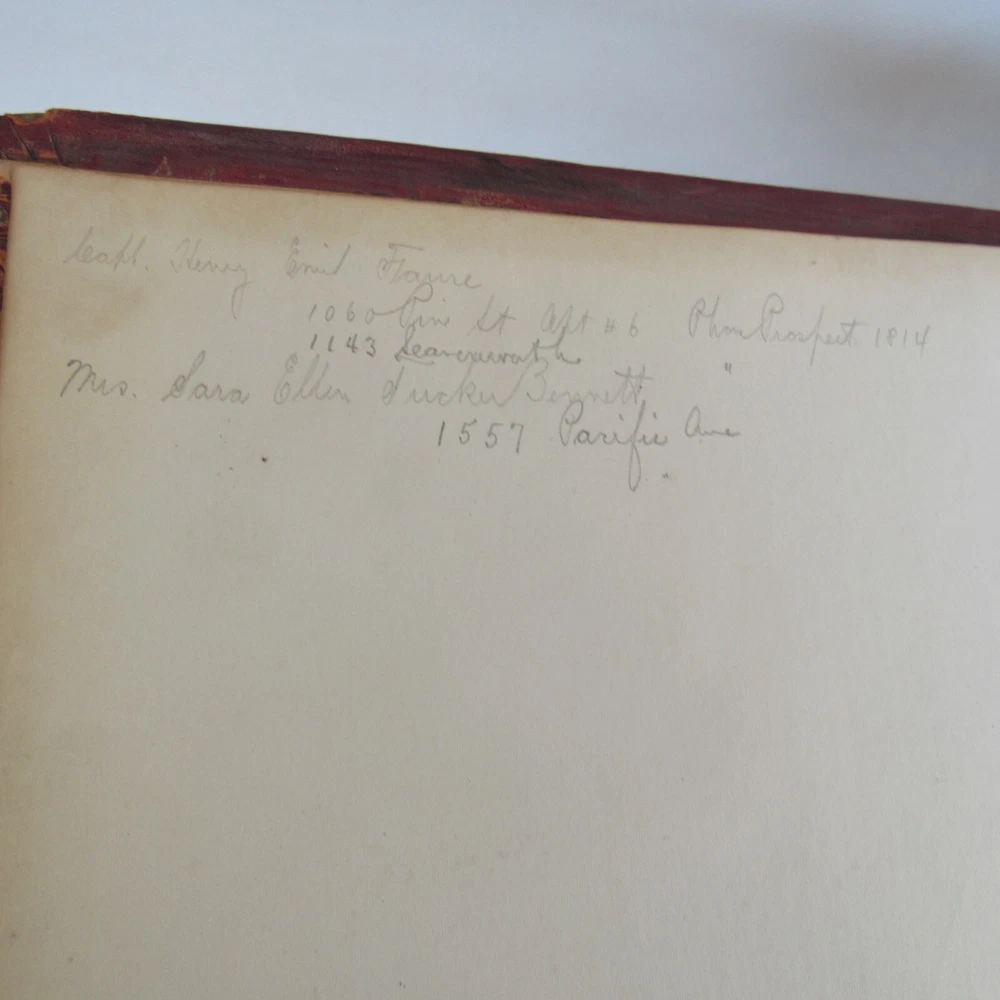 Capt. Henry Emil Faure
1060 Pine St Apt #6 Phone Prospect 1814
1143 Leavenworth "
Mrs. Sara Ellen Tucker Bennett
1557 Pacific Ave